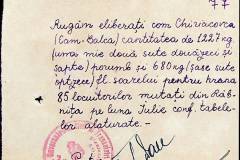 77
Rugăm eliberați com Chiriacovca
(Cam. Balca) cantitatea de 1227 kg
(una mie două sute douăzeci și
șapte) porumb și 680 kg (șase sute
optzeci) fl. soarelui pentru hrana
85 locuitorilor mutați din Râb-
nița pe luna Iulie conf. tabele-
lor alăturate. -